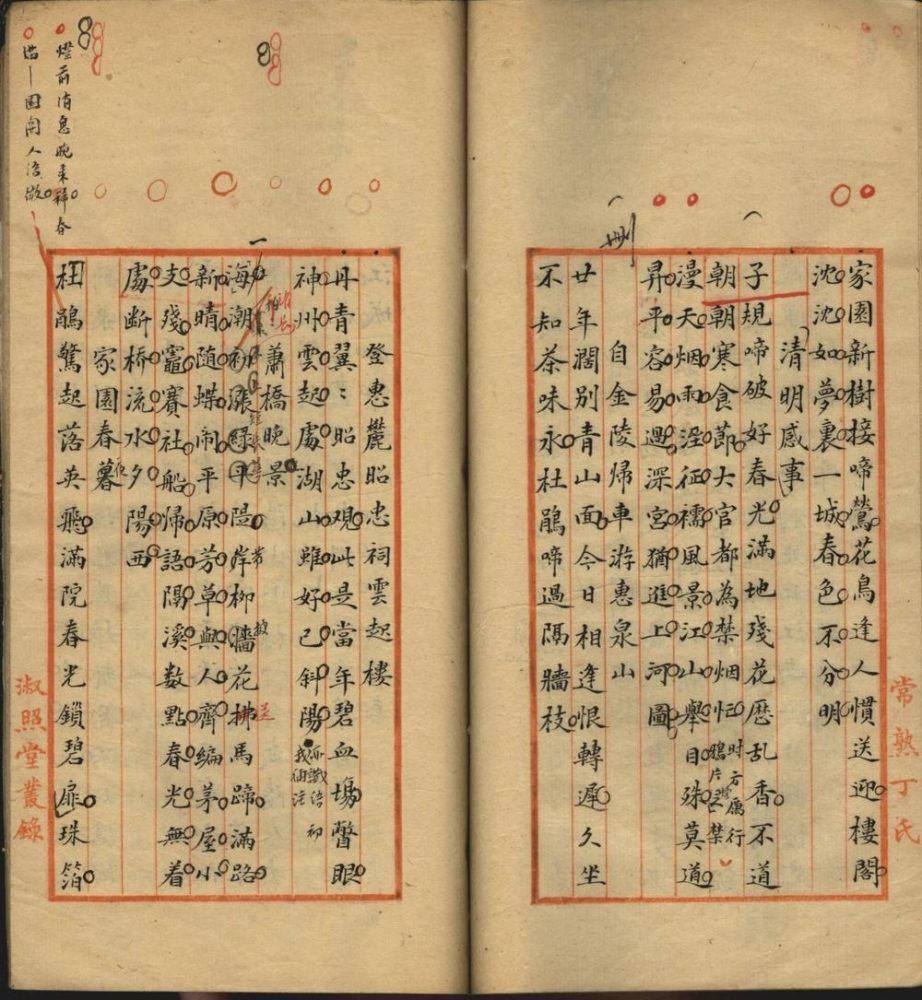 家園新樹接啼鶯花鳥逢人慣送迎樓閣
沈沈如夢裏一城春色不分明
清明感事
子規啼破好春光滿地殘花歷亂香不道
朝朝寒食節大官都為禁烟忙時方厲行鴉片之禁
漫天烟雨溼征襦風景江山舉目殊莫道
昇平容易過深宮猶逛上河圖
刪
自金陵歸車游惠泉山
廿年濶別青山面今日相逢恨轉遲久坐
不知茶味永杜鵑啼過隔牆枝
常熟丁氏
登惠麓昭忠祠雲起樓
丹青翼〻昭忠观此是當年碧血塲瞥眼
神州雲起處湖山雖好已斜陽
蕭橋晚景
海潮初漲綠平隄岸柳牆花拂馬蹄滿路
新晴随蝶闹平原芳草與人齊編茅屋小
支殘竈賽社船歸語隔溪数點春光無着
處断橋流水夕陽西
家園春暮
枉鵑驚起落英飛滿院春光鎖碧扉珠箔
燈前消息晚来
淑照堂叢錄